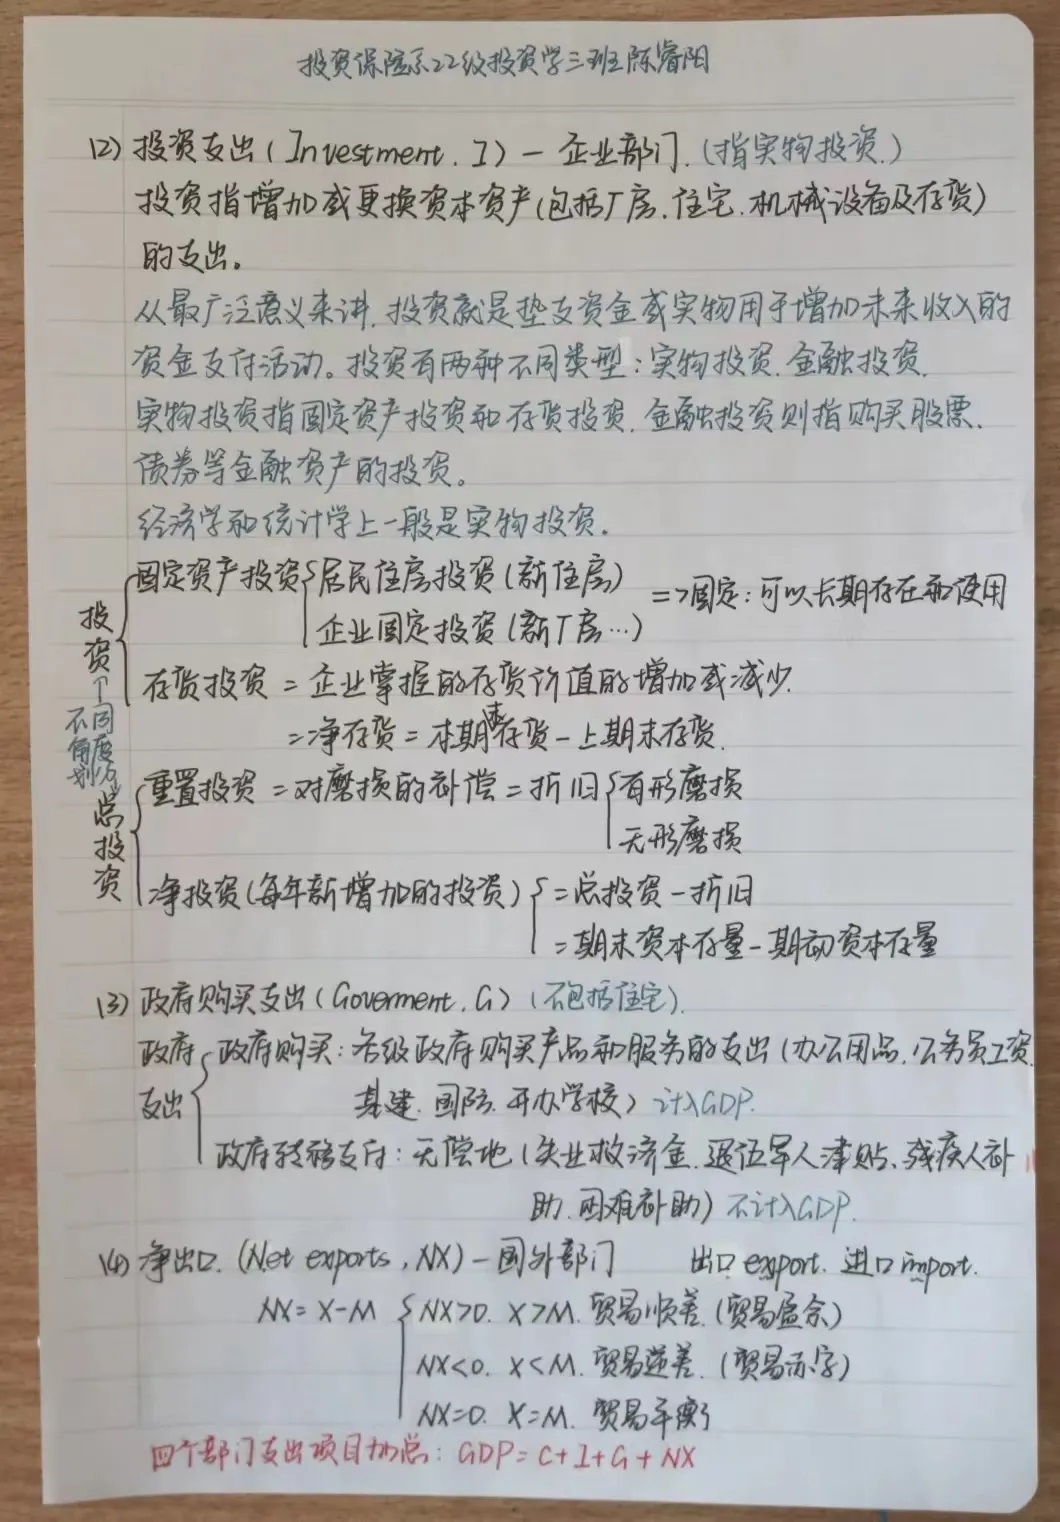 投资保险系22级投资学三班陈睿阳
(2) 投资支出(Investment. I) — 企业部门. (指实物投资.)
投资指增加或更换资本资产(包括厂房. 住宅. 机械设备及存货)
的支出。
从最广泛意义来讲, 投资就是垫支资金或实物用于增加未来收入的
资金支付活动。投资有两种不同类型: 实物投资. 金融投资.
实物投资指固定资产投资和存货投资. 金融投资则指购买股票.
债券等金融资产的投资。
经济学和统计学上一般是实物投资.
固定资产投资 居民住房投资(新住房)
企业固定投资(新厂房…)
=>固定: 可以长期存在和使用
投资
存货投资 = 企业掌握的存货价值的增加或减少.
= 净存货 = 本期末存货 - 上期末存货.
↑不同角度划分
总投资
重置投资 = 对磨损的补偿 = 折旧 有形磨损
无形磨损
净投资(每年新增加的投资) = 总投资 - 折旧
= 期末资本存量 - 期初资本存量
(3) 政府购买支出(Goverment. G) (不包括住宅).
政府支出
政府购买: 各级政府购买产品和服务的支出(办公用品. 公务员工资.
基建. 国防. 开办学校) 计入GDP.
政府转移支付: 无偿地(失业救济金. 退伍军人津贴、残疾人补
助. 困难补助) 不计入GDP.
(4) 净出口. (Net exports, NX) — 国外部门 出口 export. 进口 import.
NX = X-M NX>0. X>M. 贸易顺差. (贸易盈余)
NX<0. X<M. 贸易逆差. (贸易赤字)
NX=0. X=M. 贸易平衡
四个部门支出项目加总: GDP = C+I+G+NX